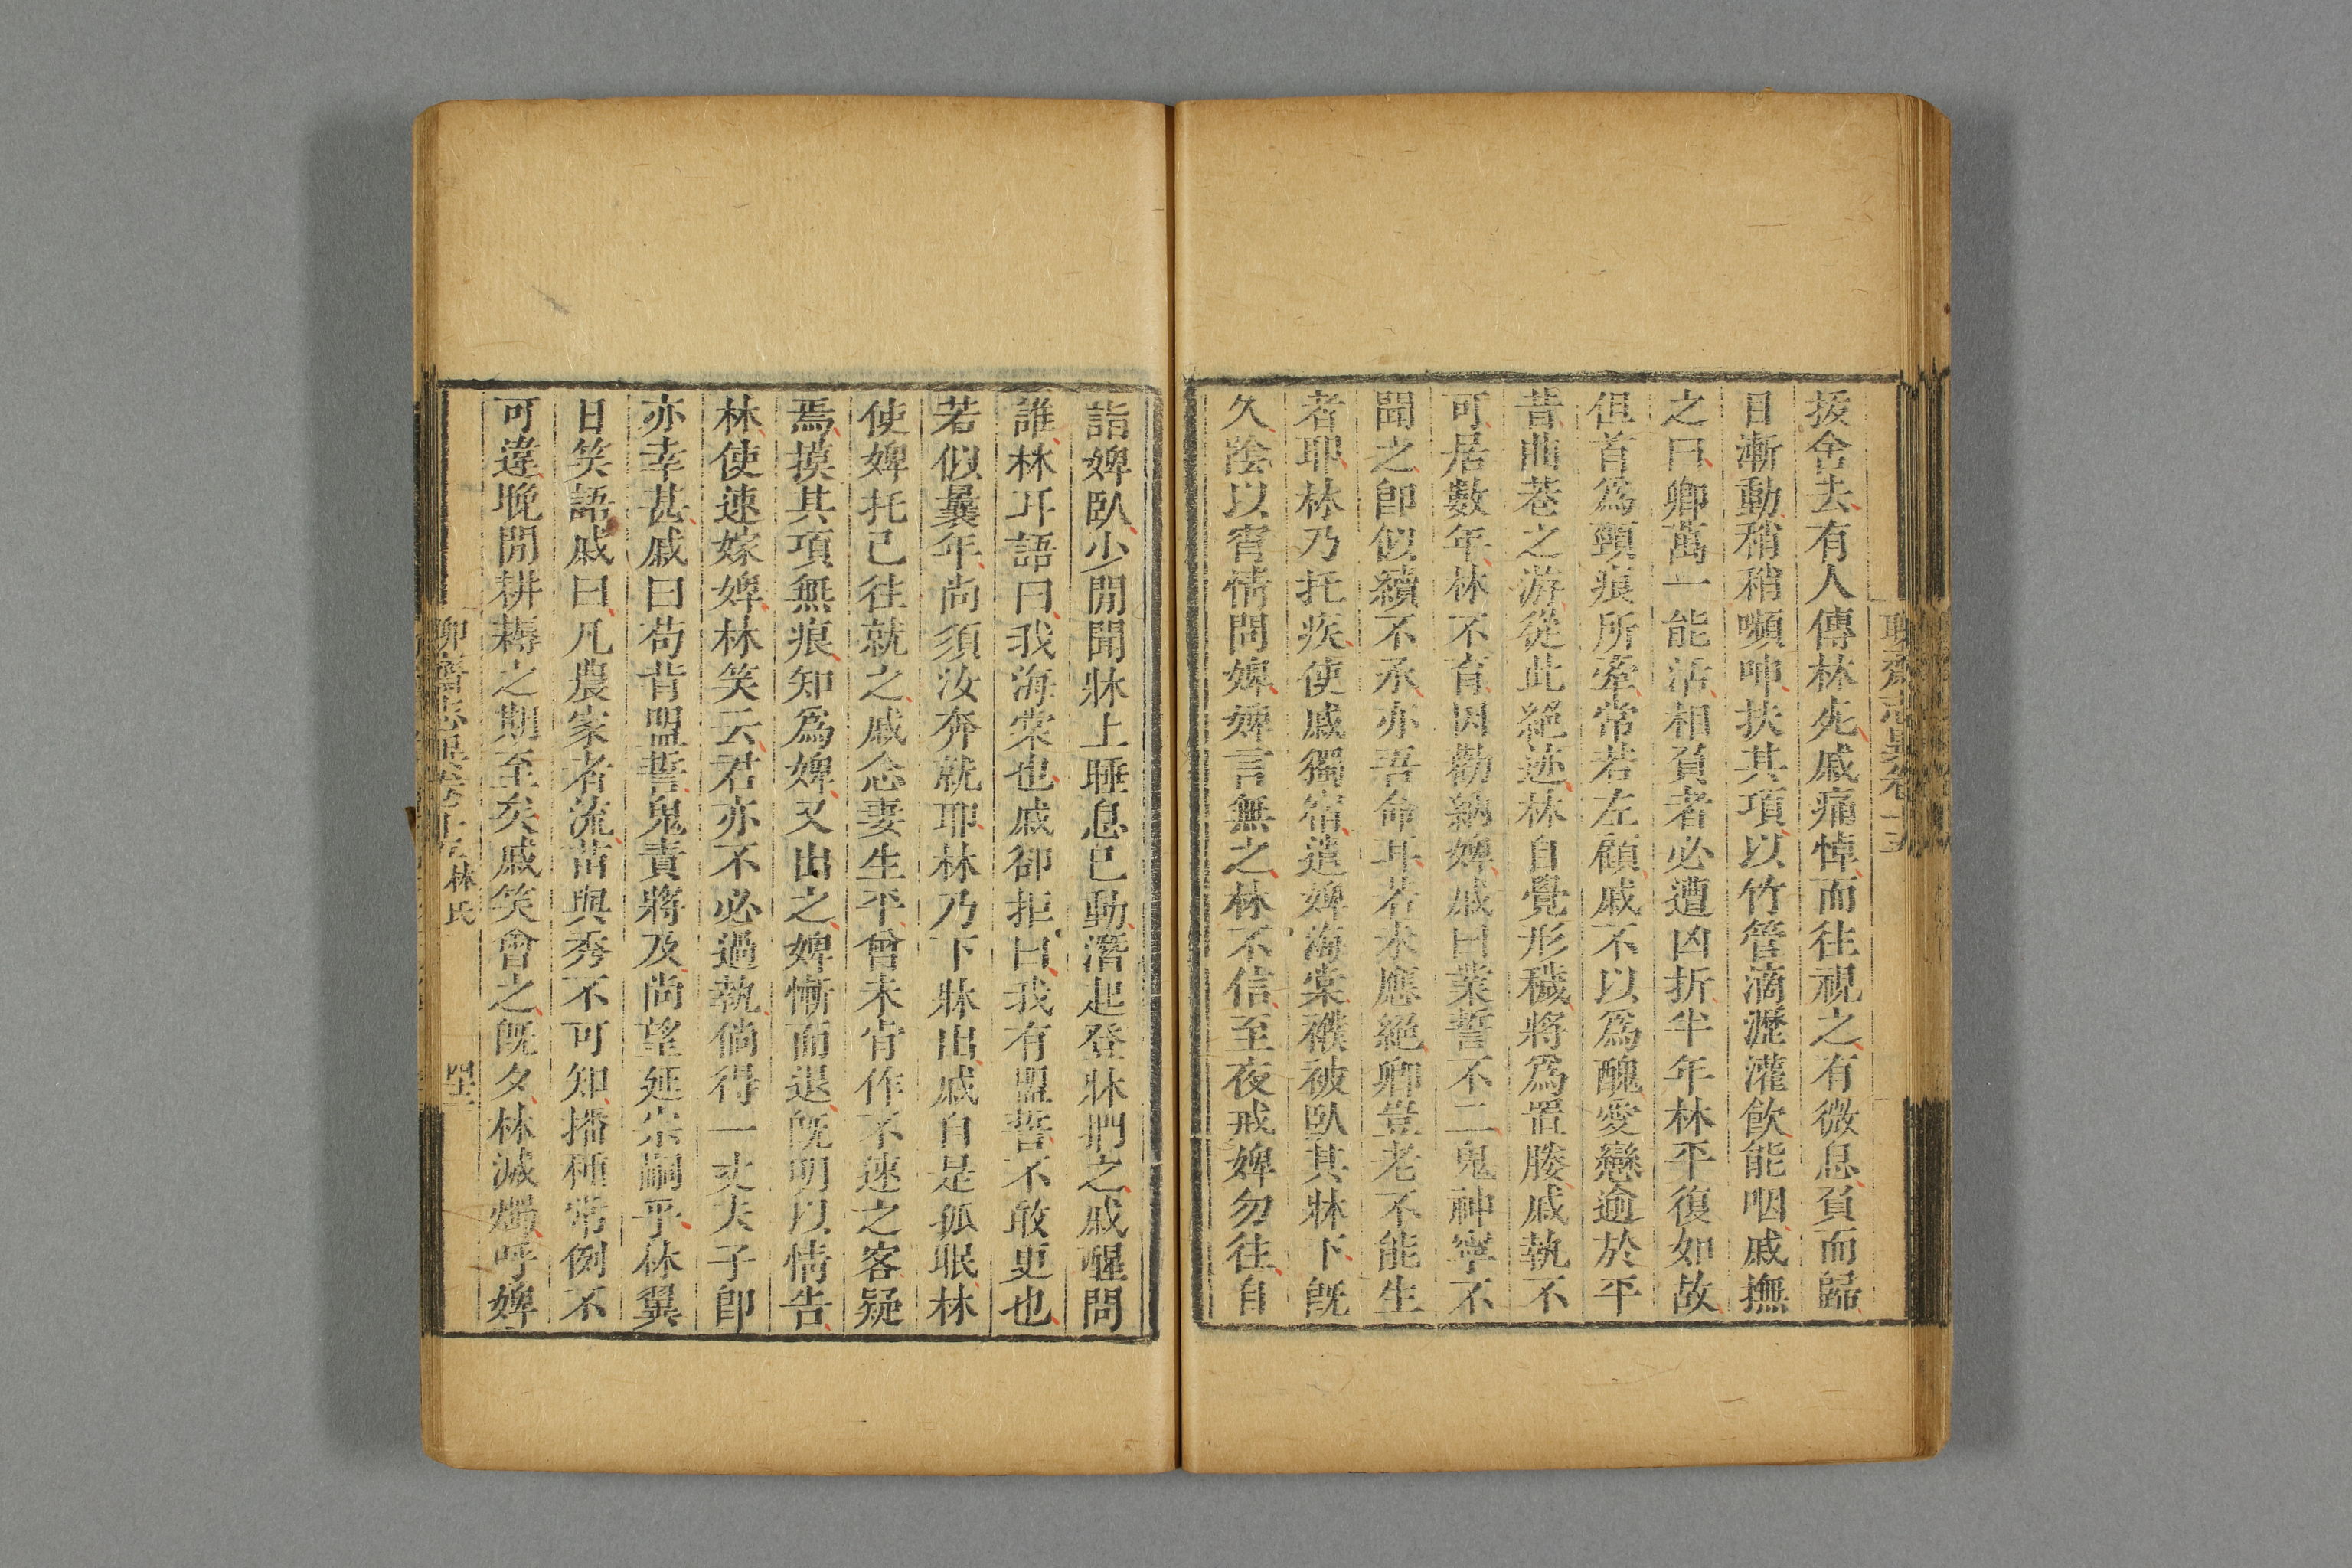 聊齋志異卷十五
拔舍去有人傳林死戚痛悼而往視之有微息負而歸
目漸動稍稍嚬呻扶其項以竹管滴瀝灌飲能咽戚撫
之曰卿萬一能活相負者必遭凶折半年林平復如故
但首爲頸痕所牽常若左顧戚不以爲醜愛戀逾於平
昔曲巷之游從此絕迹林自覺形穢將爲置媵戚執不
可居數年林不育因勸納婢戚曰業誓不二鬼神寧不
聞之卽似續不承亦吾命耳若未應絕卿豈老不能生
者耶林乃托疾使戚獨宿遣婢海棠襆被臥其牀下旣
久陰以宵情問婢婢言無之林不信至夜戒婢勿往自
詣婢臥少閒聞牀上睡息已動潛起登牀捫之戚醒問
誰林耳語曰我海棠也戚卻拒曰我有盟誓不敢更也
若似曩年尚須汝奔就耶林乃下牀出戚自是孤眠林
使婢托己往就之戚念妻生平曾未肯作不速之客疑
焉摸其項無痕知爲婢又出之婢慚而退旣明以情告
林使速嫁婢林笑云君亦不必過執倘得一丈夫子卽
亦幸甚戚曰苟背盟誓鬼責將及尚望延宗嗣乎林翼
日笑語戚曰凡農家者流苗與秀不可知播種常例不
可違晚閒耕耨之期至矣戚笑會之旣夕林滅燭呼婢
林氏